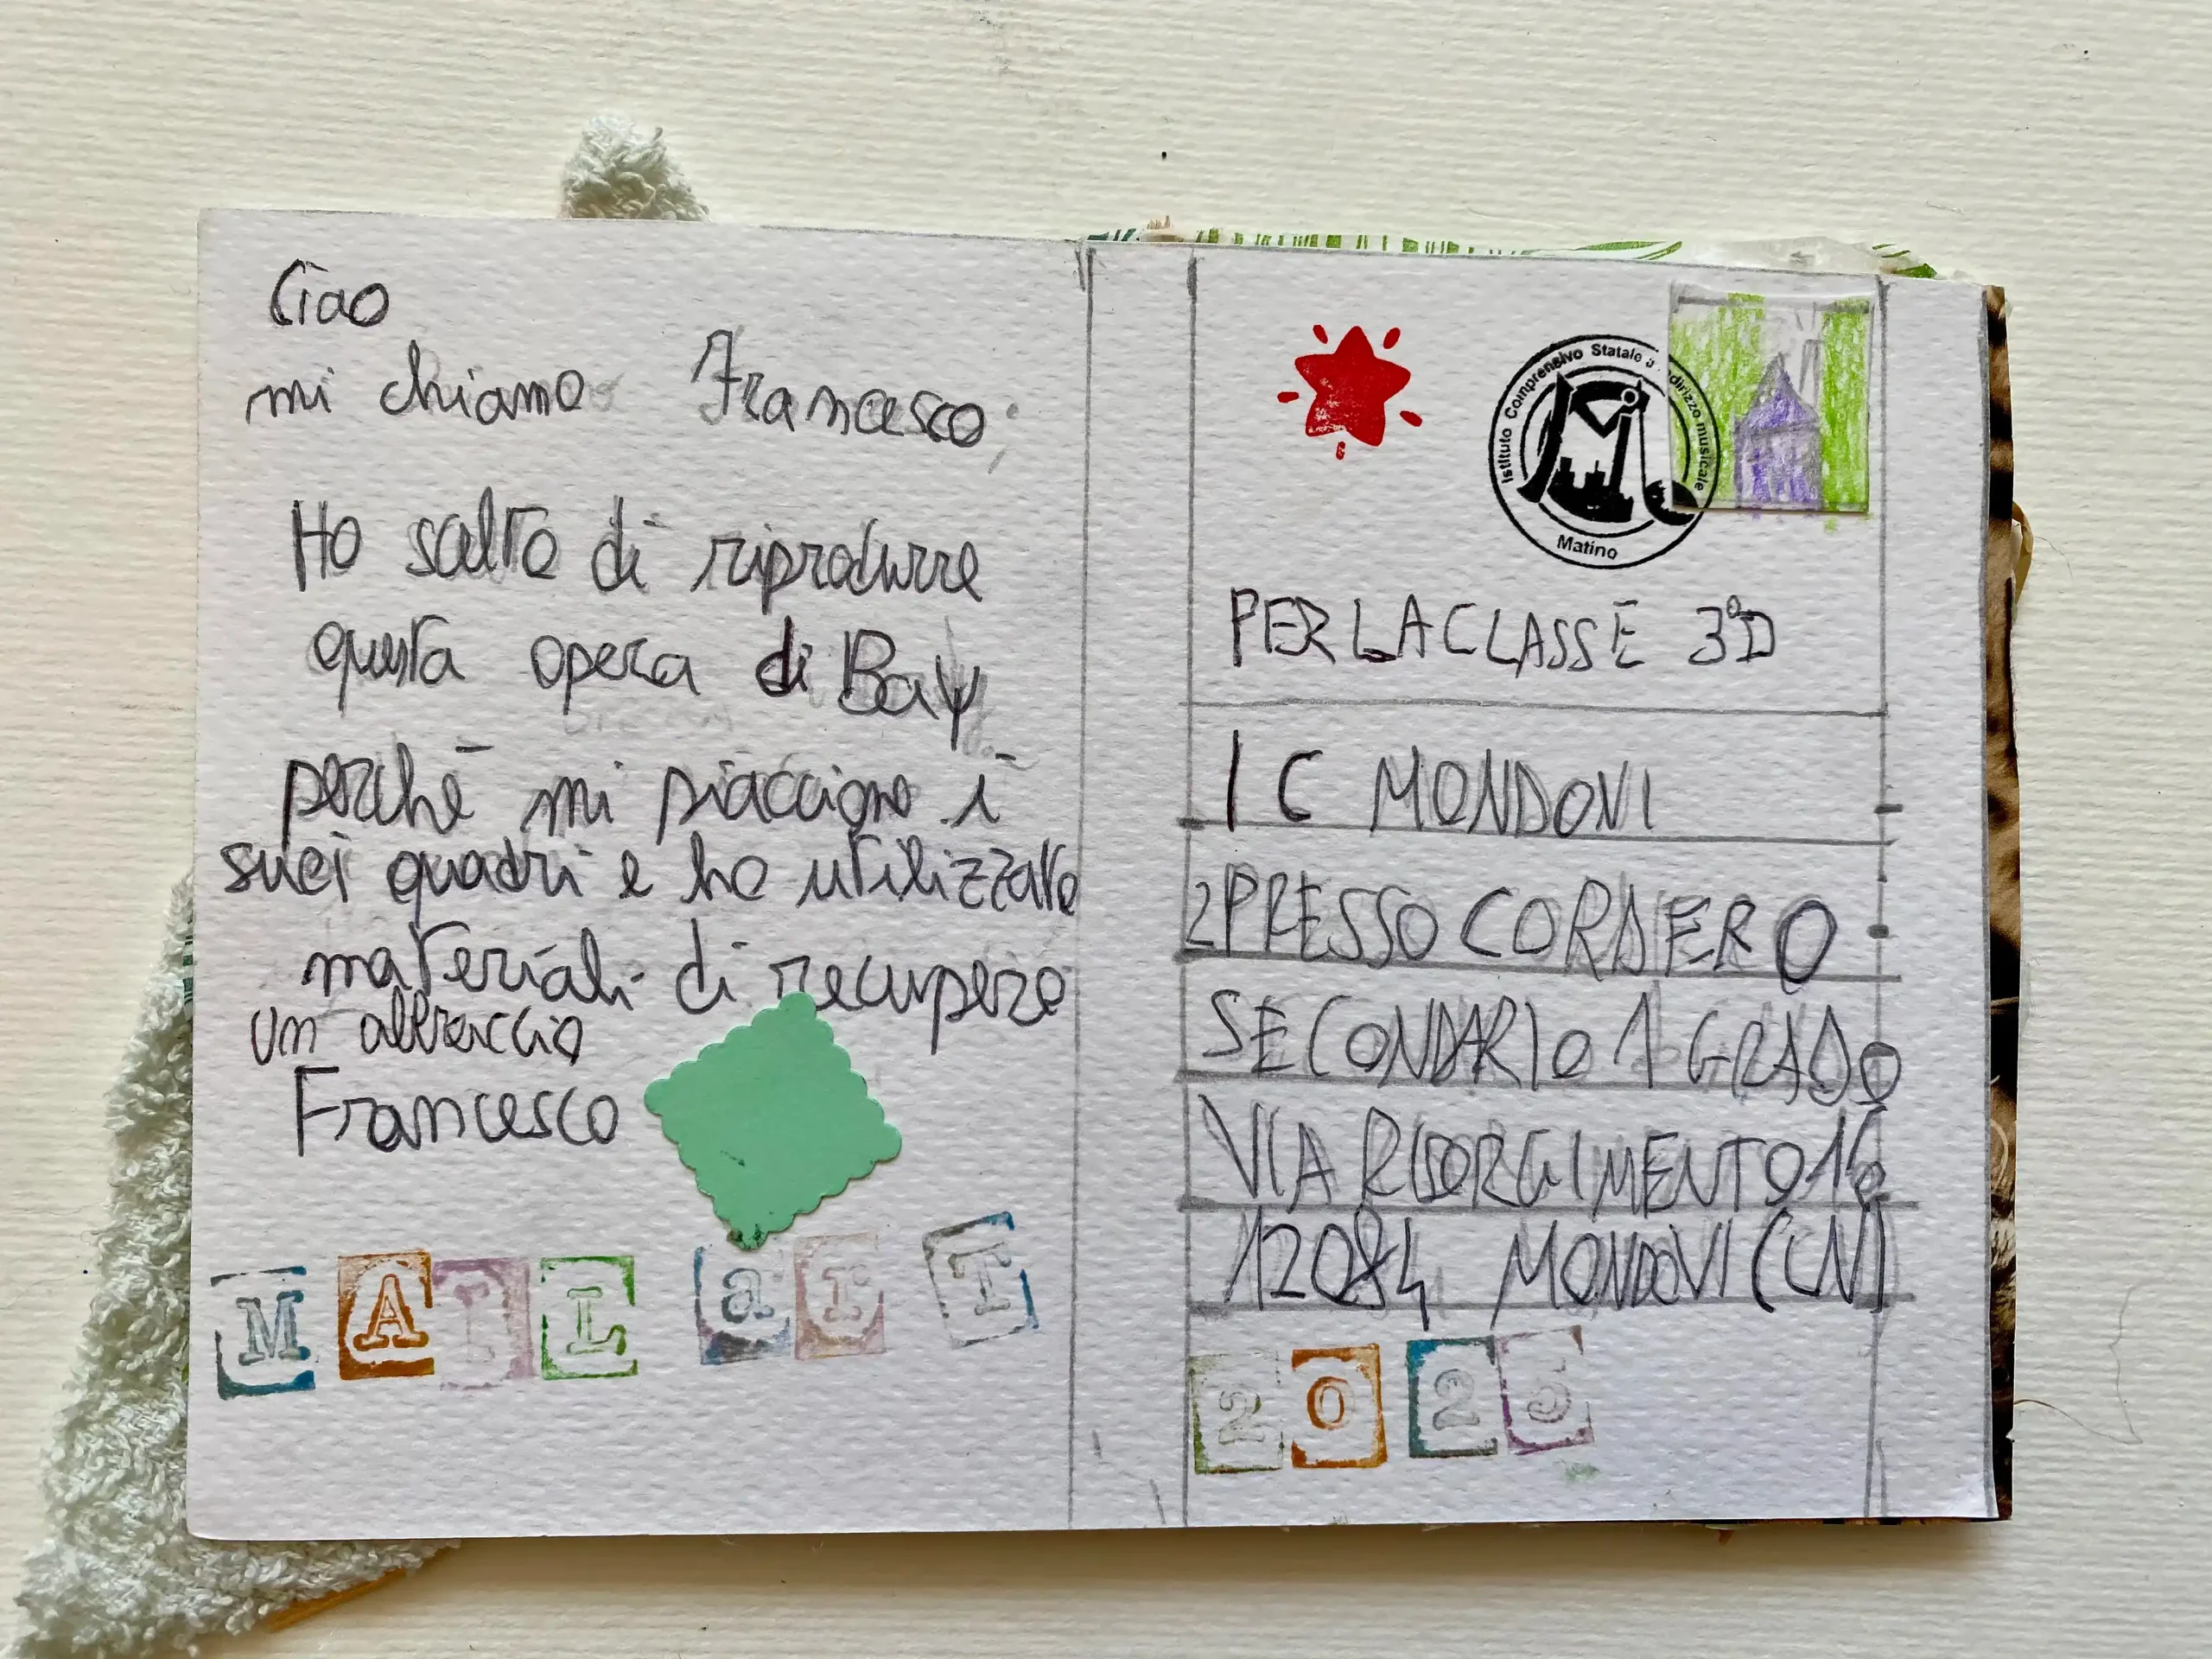 Ciao
mi chiamo Francesco;
Ho scelto di riprodurre
questa opera di Bay
perchè mi piacciono i
suoi quadri e ho utilizzato
materiali di recupero
un abbraccio
Francesco
MAIL arT
Istituto Comprensivo Statale a indirizzo musicale
Matino
PER LA CLASSE 3°D
IC MONDOVI
2 PRESSO CORDERO
SECONDARIO 1 GRADO
VIA RISORGIMENTO 16
12084 MONDOVI (CN)
2025